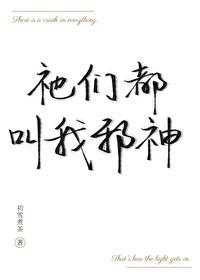 There is a crack in everything.
祂们都
叫我邪神
初雪煮茶 著
That's how the light gets in.